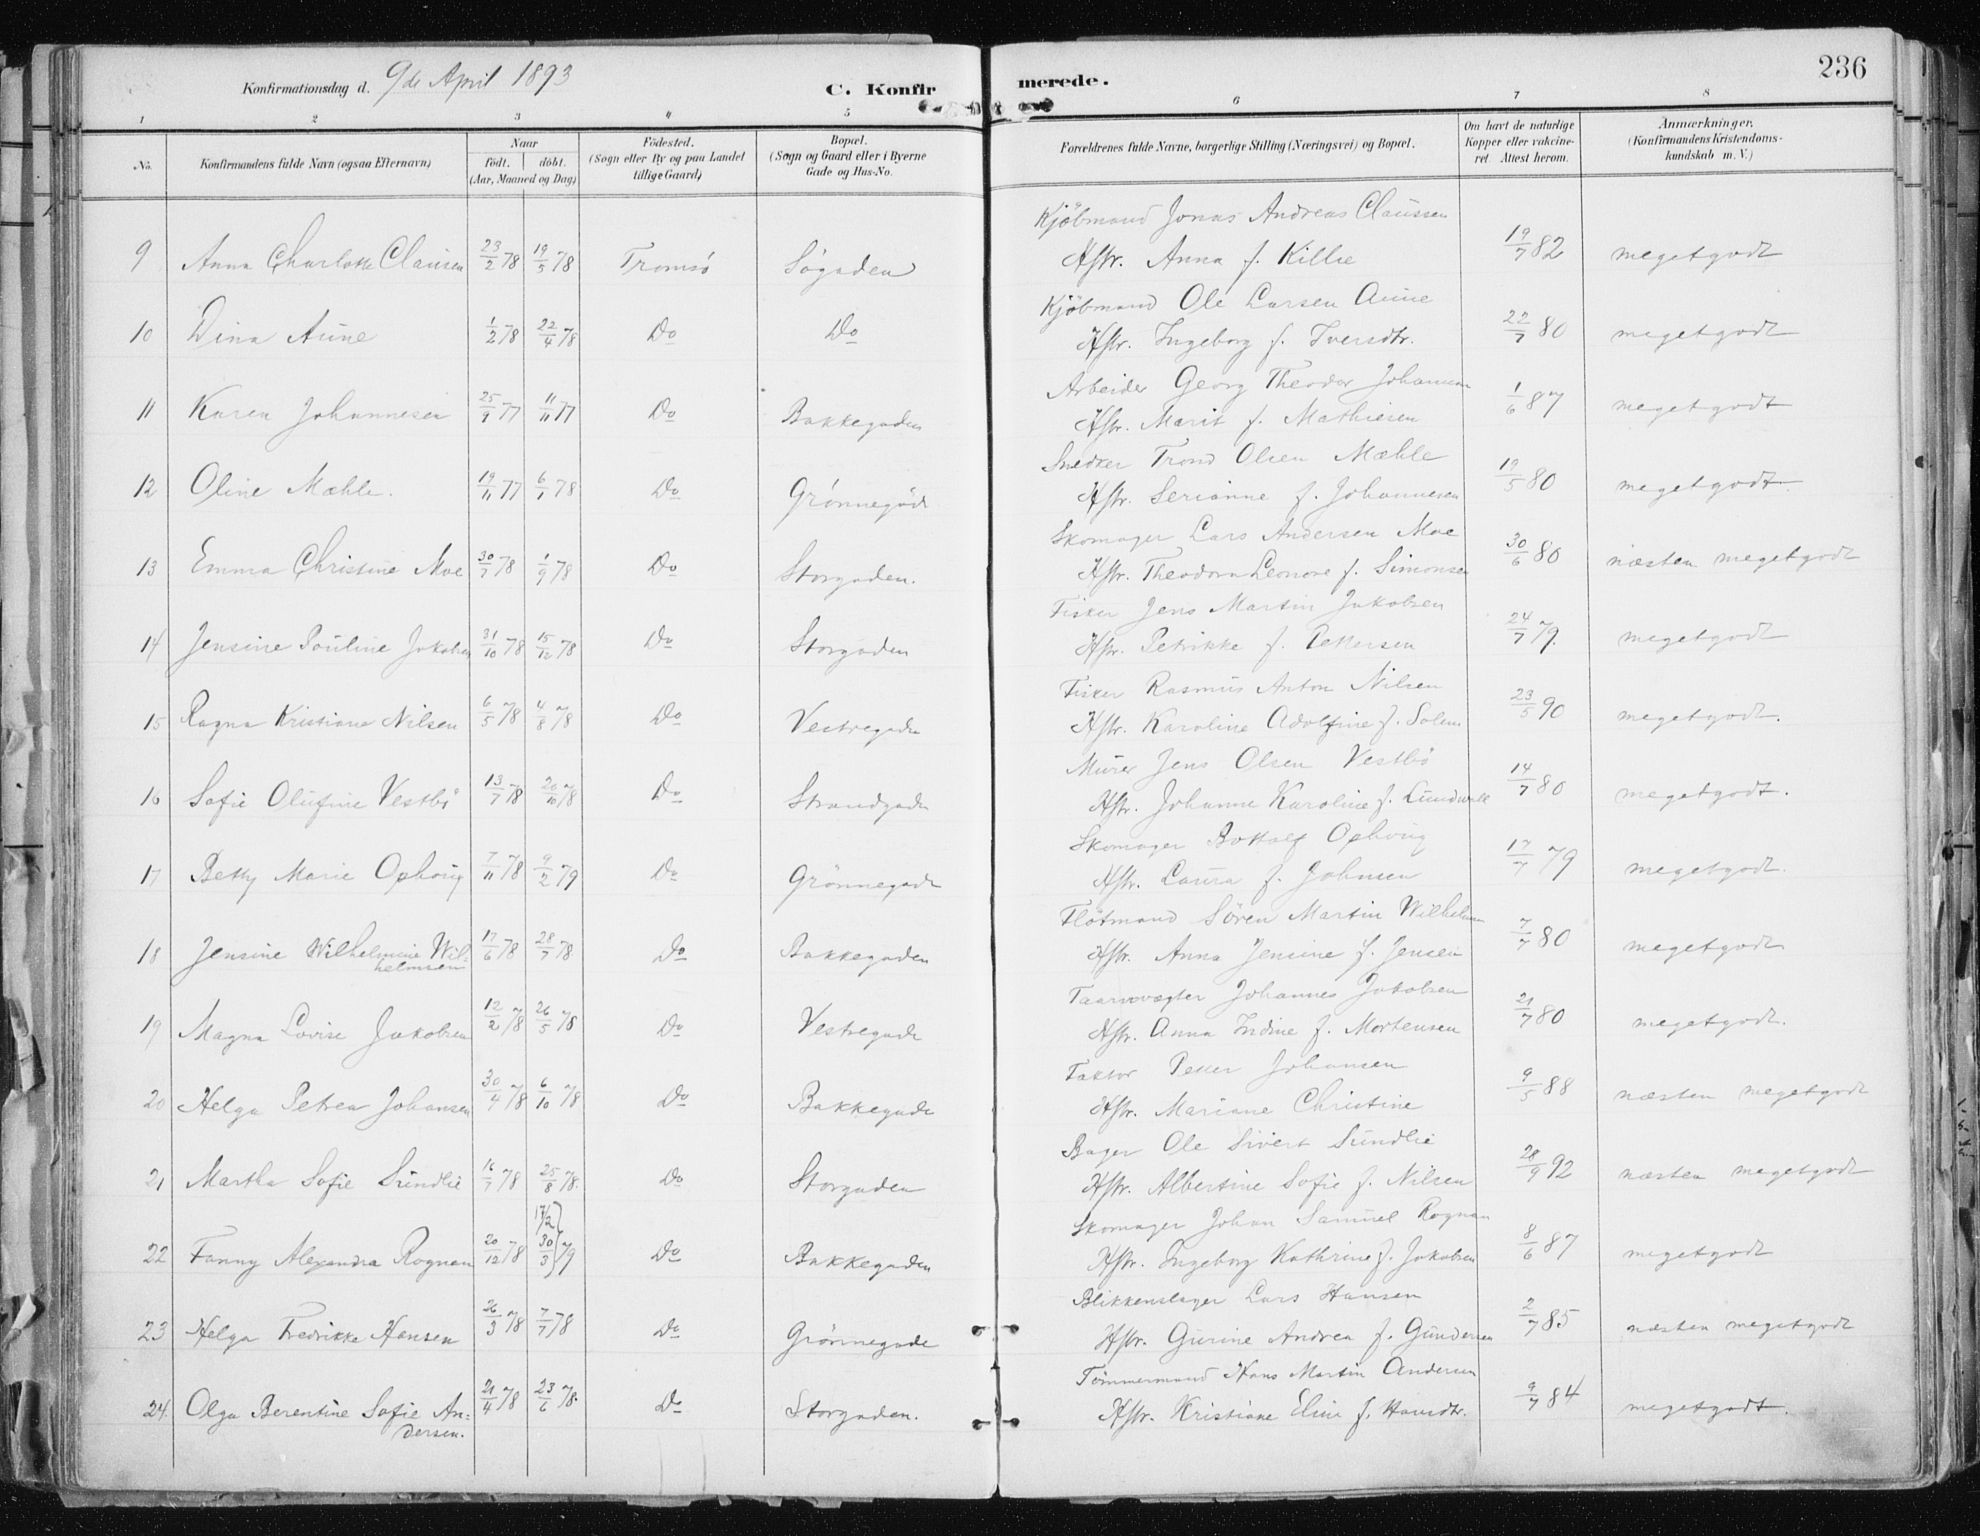 Konfirmationsdag d. 9de April 1893
C. Konfirmerede.
236
1 2 3 4 5 6 7 8
No.
Konfirmandens fulde Navn (ogsaa Efternavn)
Naar
födt. döbt.
(Aar, Maaned og Dag)
Födested.
(Sogn eller By og paa Landet
tillige Gaard)
Bopæl.
(Sogn og Gaard eller i Byerne
Gade og Hus-No.
Forældrenes fulde Navne, borgerlige Stilling (Næringsvei) og Bopæl.
Om havt de naturlige
Kopper eller vakcine-
ret. Attest herom.
Anmærkninger.
(Konfirmandens Kristendoms-
kundskab m. V.)
Kjöbmand Jonas Andreas Claussen
9 Anna Charlotte Clausen 23/2 78 19/5 78 Tromsö Sögaden Hstr. Anna f. Killie 19/7 82 megetgodt
Kjöbmand Ole Larsen Aune
10 Dina Aune 1/2 78 22/4 78 Do Do Hstr. Ingeborg f. Iversdtr. 22/7 80 megetgodt
Arbeider Georg Theodor Johannesen
11 Karen Johannesen 25/9 77 11/11 77 Do Bakkegaden Hstr. Marit f. Mathiesen 1/6 87 megetgodt
Snedker Trond Olsen Mæhle
12 Oline Mæhle. 19/11 77 6/1 78 Do Grönnegad Hstr. Serianne f. Johannesen 19/5 80 megetgodt
Skomager Lars Andersen Moe
13 Emma Christine Moe 30/7 78 1/9 78 Do Storgaden. Hstr. Theodora Leonore f. Simonsen 30/6 80 næsten megetgodt
Fisker Jens Martin Jakobsen
14 Jensine Pauline Jakobsen 31/10 78 15/12 78 Do Storgaden Hstr. Petrikke f. Pettersen 24/7 79. megetgodt
Fisker Rasmus Anton Nilsen
15 Ragna Kristiane Nilsen 6/5 78 4/8 78 Do Vestregaden Hstr. Karoline Adolfine f. Solem 23/5 90 megetgodt.
Murer Jens Olsen Vestbö
16 Sofie Olufine Vestbö 13/7 78 20/10 78 Do Strandgaden Hstr. Johanne Karoline f. Lundwall 14/7 80 megetgodt.
Skomager Bottolf Ophoug
17 Betty Marie Ophoug 7/11 78 9/2 79 Do Grönnegade Hstr. Laura f. Johnsen 17/7 79 megetgodt.
Flötmand Sören Martin Wilhelmsen
18 Jensine Wilhelmine Wil- 17/6 78 28/7 78 Do Bakkegaden Hstr. Anna Jensine f. Jensen 7/7 80 megetgodt
helmsen
Taarnvægter Johannes Jakobsen
19 Magna Lovise Jakobsen 12/2 78 26/5 78 Do Vestregade Hstr. Anna Indine f. Mortensen 21/7 80 megetgodt.
Faktor Petter Johansen
20 Helga Petrea Johansen 30/4 78 6/10 78 Do Bakkegade Hstr. Mariane Christine 9/5 88 næsten megetgodt
Bager Ole Sivert Sundlie
21 Martha Sofie Sundlie 16/7 78 25/8 78. Do Storgaden Hstr. Albertine Sofie f. Nilsen 28/9 92 næsten megetgodt
Skomager Johan Samuel Rognan
22 Fanny Alexandra Rognan 20/12 78 17/2 30/3 79 Do Bakkegaden Hstr. Ingeborg Kathrine f. Jakobsen 8/6 87 megetgodt
Blikkenslager Lars Hansen
23 Helga Fredrikke Hansen 26/3 78 7/7 78 Do Grönnegade Hstr. Gurine Andrea f. Gundersen 2/7 85 næsten megetgodt
Tömmermand Hans Martin Andersen
24. Olga Berentine Sofie An- 21/4 78 23/6 78. Do Storgaden. Hstr. Kristiane Eline f. Hansdtr. 9/7 84 megetgodt.
dersen.